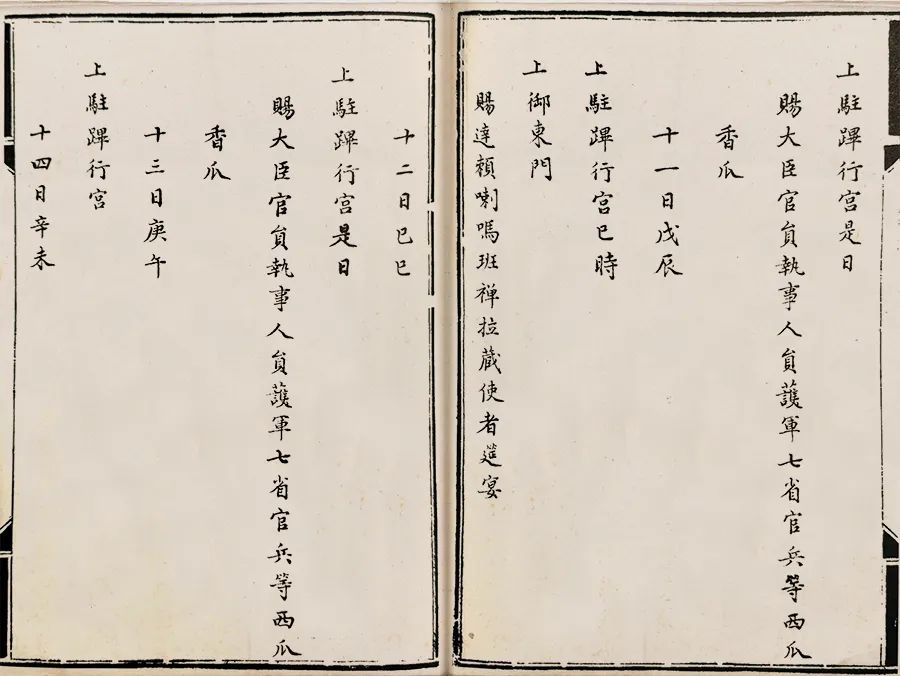 上駐蹕行宮是日
賜大臣官員執事人員護軍七省官兵等西瓜
香瓜
十一日戊辰
上駐蹕行宮巳時
上御東門
賜達賴喇嗎班禪拉藏使者筵宴
十二日己巳
上駐蹕行宮是日
賜大臣官員執事人員護軍七省官兵等西瓜
香瓜
十三日庚午
上駐蹕行宮
十四日辛未